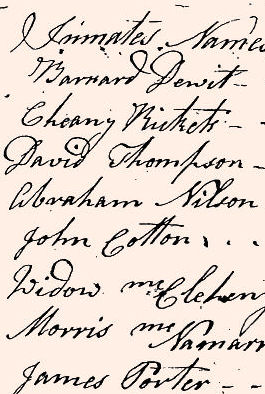 Inmates Names
Barnard Dewit -
Cheany Rickets -
David Thompson -
Abraham Nilson
John Cotton . . .
Widow McCleheny
Morris McNamarr
James Porter - -